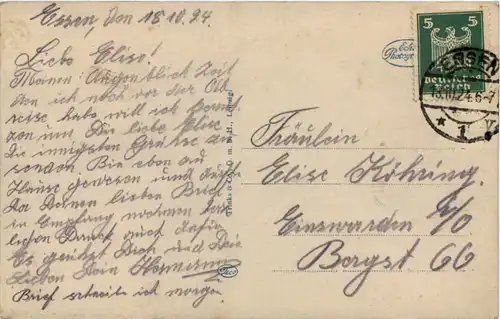 Essen, den 18.10.24.
Liebe Elise!
Meinen Augenblick Zeit
den ich noch vor der
reise habe will ich
um Dir liebe Elise
die innigsten Grüsse
senden. Bin eben auf
Hause gewesen und
Deinen lieben Brief
in Empfang nehmen
lichen Dank auch dafür
Es grüsst Dich und Die
Lieben Dein Hermann
Brief schreibe ich morgen.
Trinks & Co., G. m. b. H., Leipzig.
5 5
Deutsches
Reich
ESSEN
18.10.24.6-7
* 1
Fräulein
Elise Köhring
Einswarden
Bergst 66